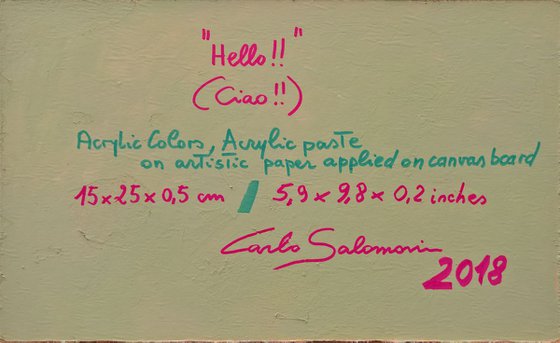 "Hello!!"
(Ciao!!)
Acrylic Colors, Acrylic paste
on artistic paper applied on canvas board
15x25x0,5 cm / 5,9 x 9,8 x 0,2 inches
Carlo Salomoni
2018